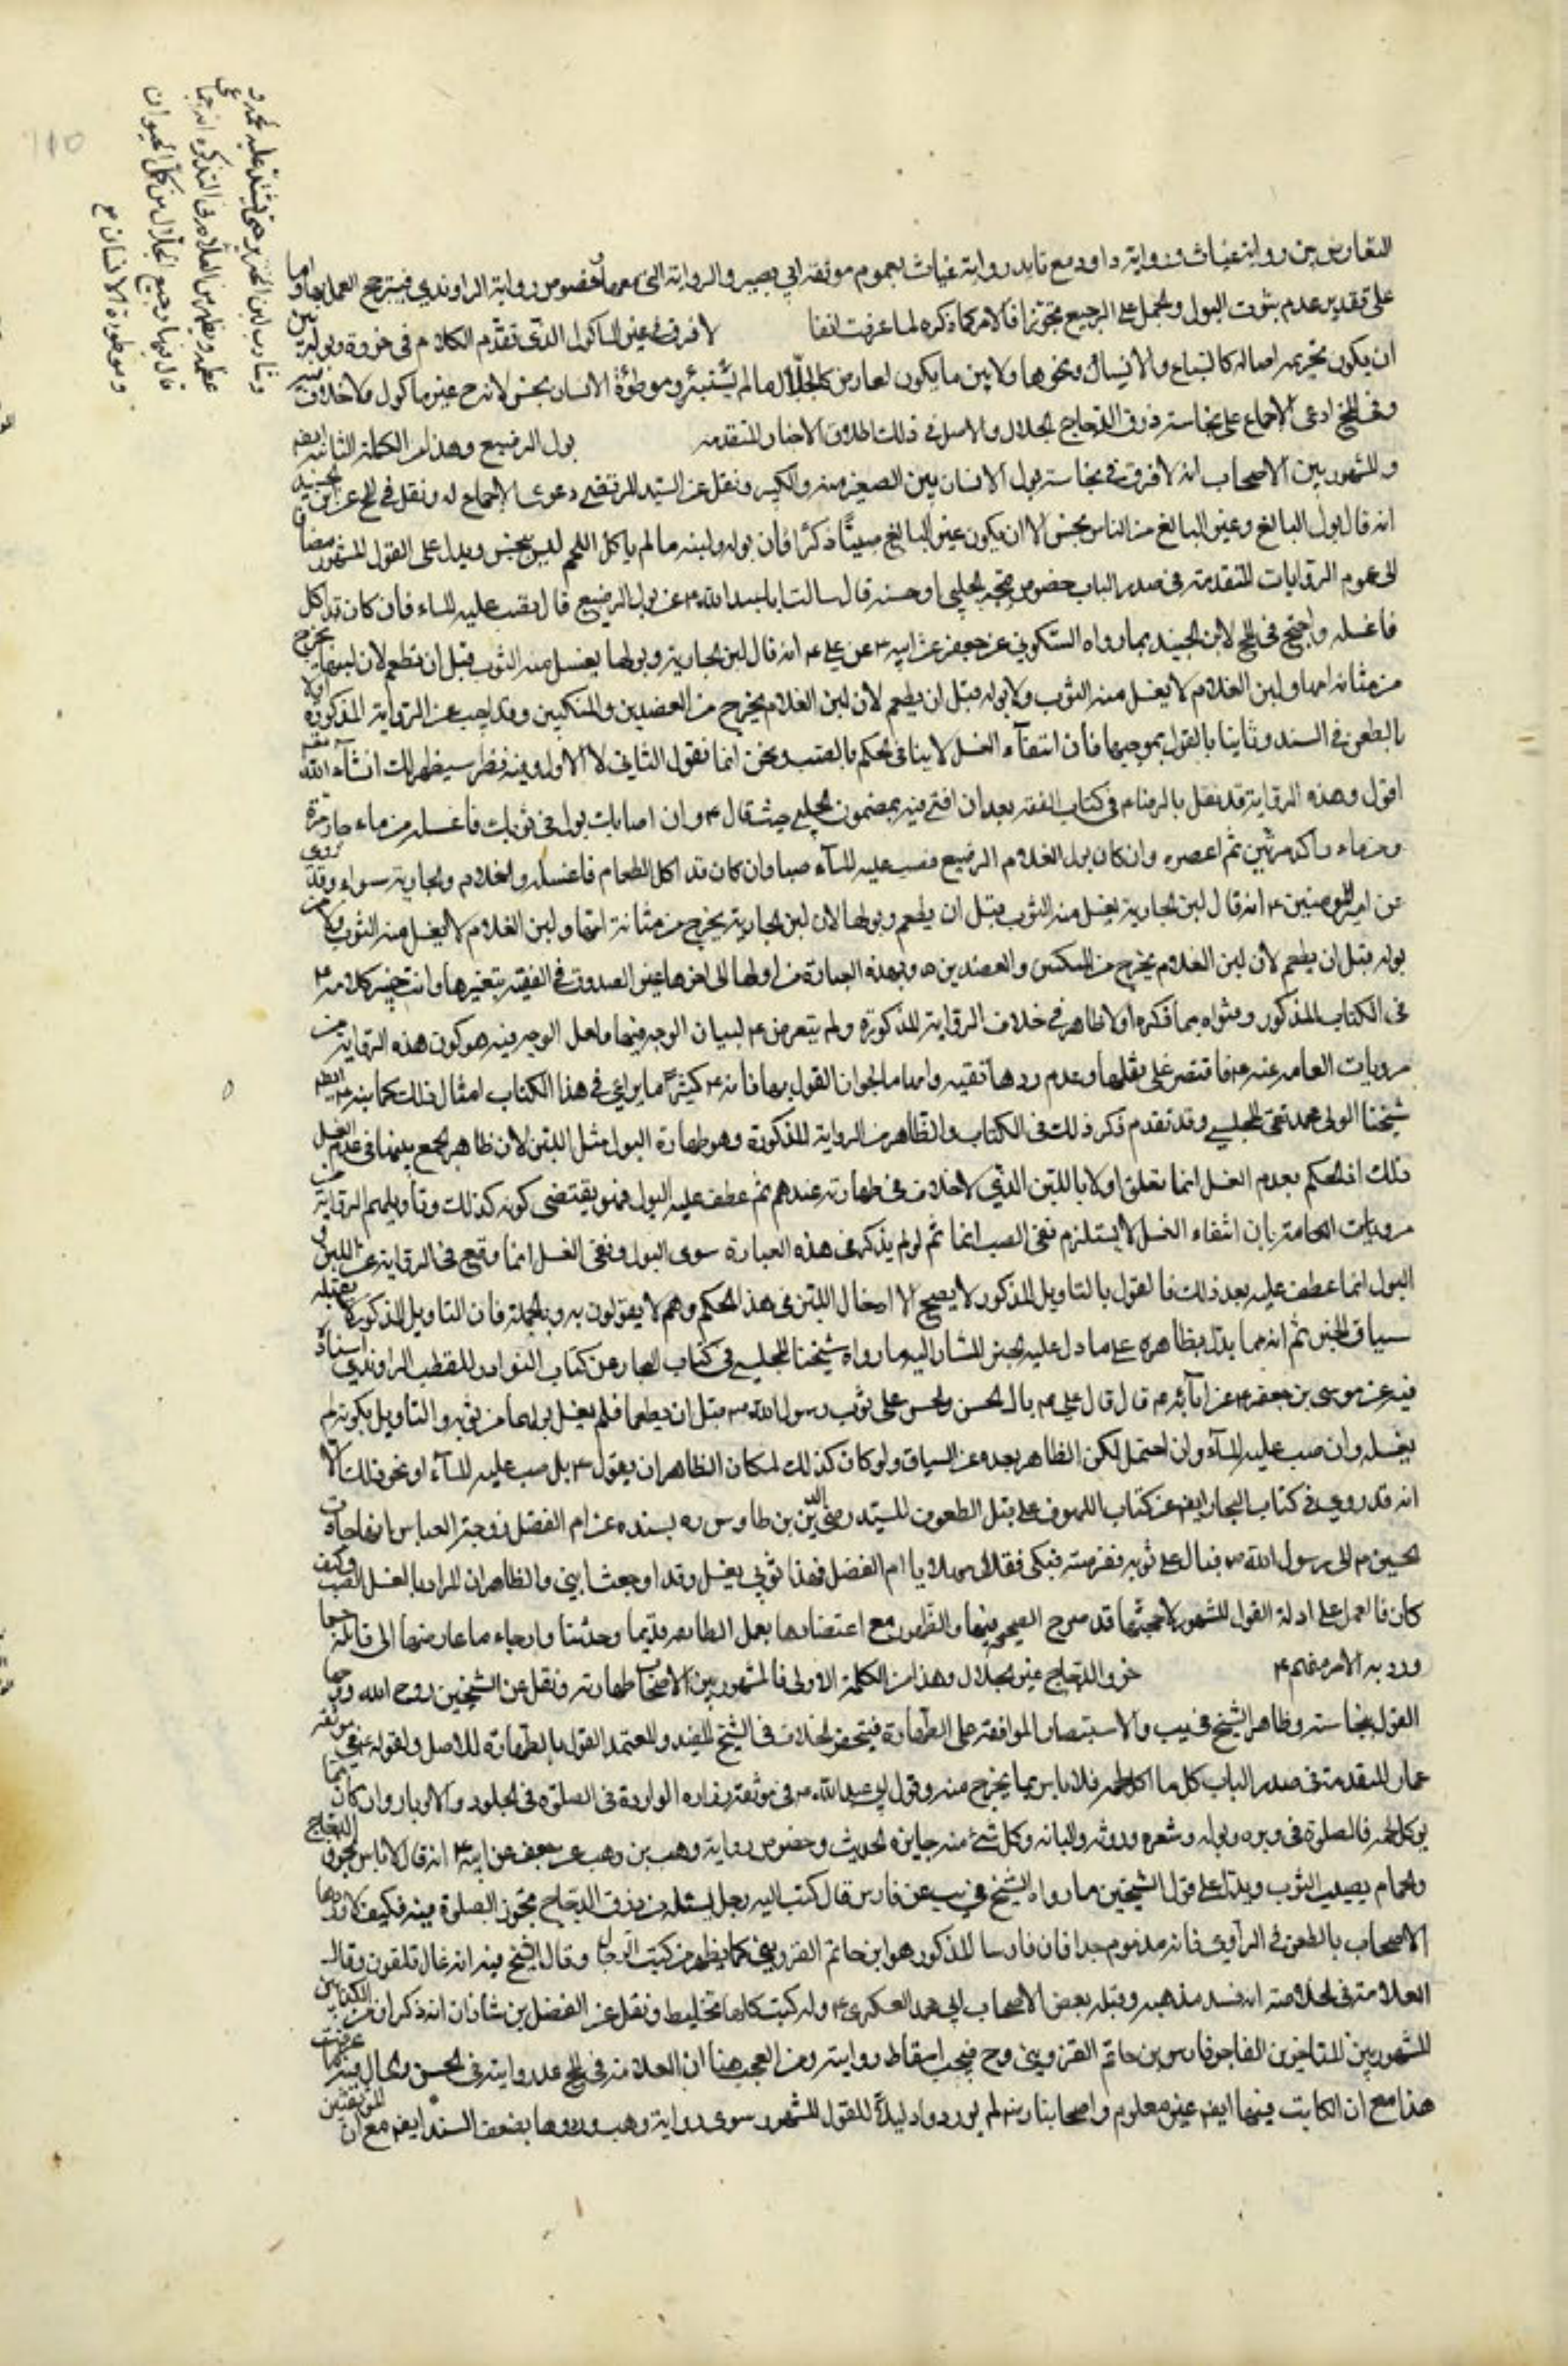 التعارض بين رواية غياث ورواية داود مع تايد رواية غياث بعموم موثقة ابي بصير والرواية التي معها وخصوص رواية الراوندي فيترجح العمل بها واما
على تقدير عدم ثبوت البول والحمل على الرجيع تجوزا فالامر كما ذكره لما عرفت انفا لا فرق في غير الماكول الذي تقدم الكلام في خروه وبوله بين
ان يكون تحريمه اصالة كالسباع والانسان ونحوها ولا بين ما يكون لعارض كالجلال ما لم يستبرئ وموطوءة الانسان بحسن لاندرج غير ماكول ولا خلاف فيه
وفي المخ ادعى الاجماع على نجاسة ذرق الدجاج الجلال والاصل في ذلك اطلاق الاخبار المتقدمه بول الرضيع وهذا من الكلمة الثانية ايضا
والمشهور بين الاصحاب انه لا فرق في نجاسة بول الانسان بين الصغير منه والكبير ونقل عن السيد المرتضى دعوى الاجماع له ونقل في المخ عن ابن الجنيد
انه قال بول البالغ وغير البالغ من الناس نجس الا ان يكون غير البالغ صبيا ذكرا فان بوله ولبنه ما لم ياكل اللحم ليس بنجس ويدل على القول المشهور مضافا
الى عموم الروايات المتقدمة في صدر الباب خصوص صحيحة الحلبي او حسنه قال سالت ابا عبد الله ع عن بول الرضيع قال يصب عليه الماء فان كان قد اكل
فاغسله واحتج في المخ لابن الجنيد بما رواه السكوني عن جعفر عن ابيه ع عن علي ع انه قال لبن الجارية وبولها يغسل منه الثوب قبل ان تطعم لان لبنها يخرج
من مثانة امها ولبن الغلام لا يغسل منه الثوب ولا بوله قبل ان يطعم لان لبن الغلام يخرج من العضدين والمنكبين وقد اجيب عن الرواية المذكورة اولا
بالطعن في السند وثانيا بالقول بموجبها فان انتفاء الغسل لا ينافي الحكم بالصب ونحن انما نقول الثاني لا الاول وفيه نظر سيظهر لك انشاء الله
اقول وهذه الرواية قد نقل بالرضا ع في كتاب الفقه بعد ان افتى فيه بمضمون الحلبي حيث قال ع وان اصابك بول في ثوبك فاغسله من ماء جار مرة
ومن ماء راكد مرتين ثم اعصره وان كان بول الغلام الرضيع فصب عليه الماء صبا وان كان قد اكل الطعام فاغسله والغلام والجارية سواء وقد روى
عن امير المومنين ع انه قال لبن الجارية يغسل منه الثوب قبل ان يطعم وبولها لان لبن الجارية يخرج من مثانة امها ولبن الغلام لا يغسل منه الثوب ولا من
بوله قبل ان يطعم لان لبن الغلام يخرج من المنكبين والعضدين ه وبهذه العبارة من اولها الى اخرها عبر الصدوق في الفقيه بتغيرها وانت خبير كلامه ع
في الكتاب المذكور وفتواه بما ذكره اولا ظاهر في خلاف الرواية المذكورة ولم يتعرض ع لبيان الوجه فيها ولعل الوجه فيه هو كون هذه الرواية من
مرويات العامه عنه ع فاقتصر على نقلها وعدم ردها تقيه واما ما لجواز القول بها فانه ع كثيرا ما يراعي في هذا الكتاب امثال ذلك كما بينه ع ايضا
شيخنا المولى محمد تقي المجلسي وقد تقدم ذكر ذلك في الكتاب والظاهر من الرواية المذكورة وهو طهارة البول مثل اللبن لان ظاهر الجمع بينهما في عدم الغسل
ذلك اذ الحكم بعدم الغسل انما تعلق اولا باللبن الذي لا خلاف في طهارته عندهم ثم عطف عليه البول فهو يقتضي كونه كذلك وتاويلهم الرواية من
مرويات العامة بان انتفاء الغسل لا يستلزم نفي الصب انما ثم لو لم يذكر في هذه العبارة سوى البول ونفي الغسل انما وقع في الرواية عن اللبن و
البول انما عطف عليه بعد ذلك فالقول بالتاويل المذكور لا يصح الا ادخال اللبن في هذا الحكم وهم لا يقولون به وبالجملة فان التاويل المذكور لا يقبله
سياق الخبر ثم انه مما يدل بظاهره على ما دل عليه الخبر المشار اليه ما رواه شيخنا المجلسي في كتاب البحار عن كتاب النوادر للقطب الراوندي باسناده
فيه عن موسى بن جعفر ع عن ابائه ع قال قال علي ع بال الحسن والحسين على ثوب رسول الله ص قبل ان يطعما فلم يغسل بولهما من ثوبه والتاويل بكونه لم
يغسله وان صب عليه الماء وان احتمل لكن الظاهر بعده عن السياق ولو كان كذلك لكان الظاهر ان يقول ع بل صب عليه الماء او نحو ذلك الا
انه قد روي في كتاب البحار ايضا عن كتاب اللهوف على قتل الطفوف للسيد رضي الدين بن طاوس ره بسنده عن ام الفضل زوجة العباس انها جاءت
بالحسين ع الى رسول الله ص فبال على ثوبه فقرصته فبكى فقال مهلا يا ام الفضل فهذا ثوبي يغسل وقد اوجعت ابني والظاهر ان المراد بالغسل الصب وكيف
كان فالعمل على ادلة القول المشهور لصحتها قد صرح الصحيح فيها والظهور مع اعتضادها بعمل الطائفه قديما وحديثا وارجاء ما عارضها الى قائله حيثما
ورد به الامر منهم ع خرو الدجاج غير الجلال وهذا من الكلمة الاولى فالمشهور بين الاصحاب طهارته ونقل عن الشيخين روح الله روحهما
القول بنجاسته وظاهر الشيخ في يب والاستبصار الموافقة على الطهارة فينحصر الخلاف في الشيخ المفيد والمعتمد القول بالطهارة للاصل ولقوله ع في موثقة
عمار المتقدمة في صدر الباب كل ما اكل لحمه فلا باس بما يخرج منه وقول ابي عبد الله ع في موثقة زراره الواردة في الصلوة في الجلود والاوبار وان كان مما
يوكل لحمه فالصلوة في وبره وبوله وشعره وروثه والبانه وكل شئ منه جايزه الحديث وخصوص رواية وهب بن وهب عن جعفر عن ابيه ع انه قال لا باس بخرو الدجاج
والحمام يصيب الثوب ويدل على قول الشيخين ما رواه الشيخ في يب عن فارس قال كتب اليه رجل يسئله عن ذرق الدجاج تجوز الصلوة فيه فكتب لا وردها
الاصحاب بالطعن في الراوي فانه مذموم جدا فان فارسا المذكور هو ابن حاتم القزويني كما يظهر من كتب الرجال وقال الشيخ فيه انه غال ملعون وقال
العلامة في الخلاصة انه فسد مذهبه وقتله بعض الاصحاب ابي محمد العسكري ع وله كتب كلها تخليط ونقل عن الفضل بن شاذان انه ذكر ان من الكذابين
المشهورين المتاخرين الفاجر فارس بن حاتم القزويني وح فيجب اسقاط روايته ومن العجب هنا ان العلامة في المخ عد روايته في الحسن والحال فيه ما عرفت
هذا مع ان الكاتب فيها ايضا غير معلوم واصحابنا رض لم يوردوا دليلا للقول المشهور سوى رواية وهب وردوها بضعف السند ايضا مع ان الموثقتين
وشارب لبن الخنزير حتى يشتد عليه لحمه و
عظمه ويظهر من العلامه في التذكره انه جماعي
قال فيها ورجيع الجلال من كل الحيوان
وموطوءة الانسان